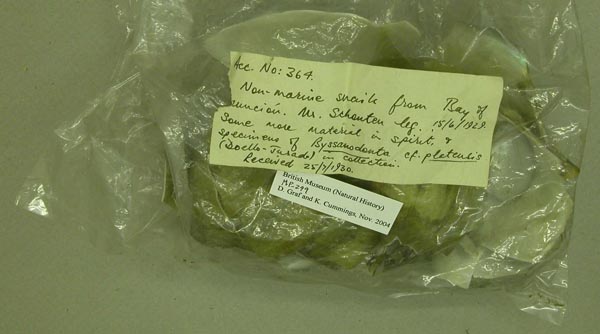 Acc. No: 364.
Non-marine snails from Bay of
unción. Mr. Schouten leg. 15/6/1929.
Some more material in spirit, &
specimens of Byssanodonta cf. platensis
(Doello-Jurado) in collection.
Received 25/7/1930.
British Museum (Natural History)
MP 299
D. Graf and K. Cummings, Nov. 2004